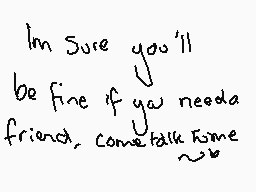 Im sure you'll
be fine if you need a
friend, come talk to me